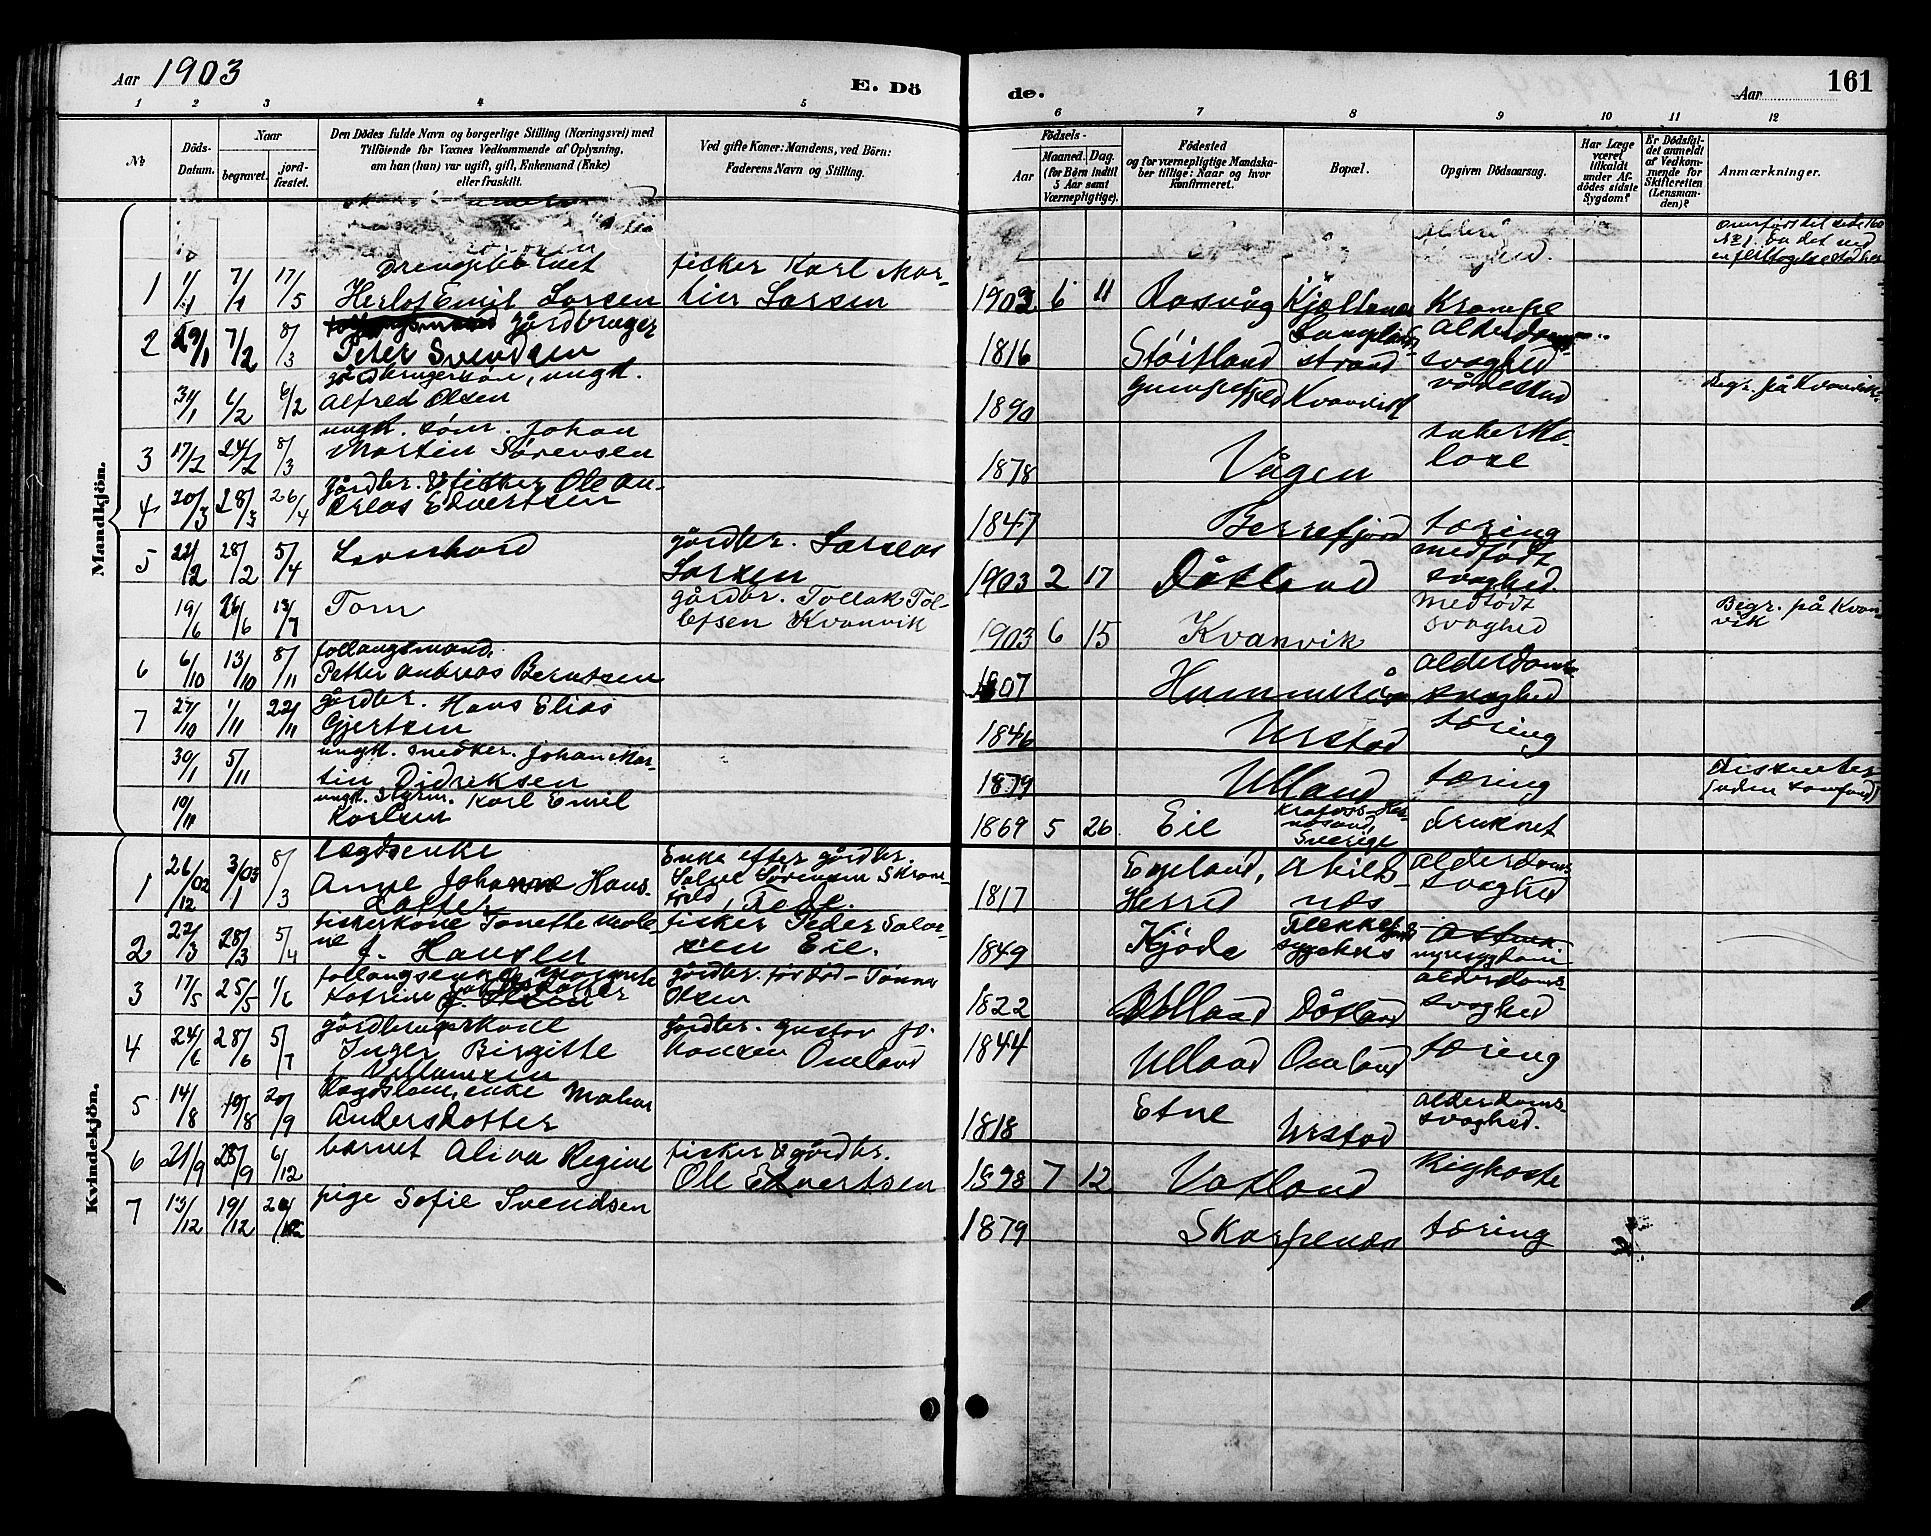 Aar 1903
E. Dö
de.
Aar
161
1 2 3 4 5 6 7 8 9 10 11 12
No
Döds-Datum.
Naar
begravet.
jord-fæstet.
Den Dödes fulde Navn og borgerlige Stilling (Næringsvei) med
Tilföiende for Voxnes Vedkommende af Oplysning,
om han (hun) var ugift, gift, Enkemand (Enke)
eller fraskilt.
Ved gifte Koner: Mandens, ved Börn:
Faderens Navn og Stilling.
Födsels-
Aar
Maaned. Dag.
(for Börn indtil
5 Aar samt
Værnepligtige).
Födested
og for værnepligtige Mandska-
ber tillige: Naar og hvor
konfirmeret.
Bopæl.
Opgiven Dödsaarsag.
Har Læge
været
tilkaldt
under Af-
dödes sidste
Sygdom?
Er Dödsfal-
det anmeldt
af Vedkom-
mende for
Skifteretten
(Lensman-
den)?
Anmærkninger.
Mandkjön.
1 1/1 7/1 17/5 Herlof Emil Larsen fisker Karl Mar-
tin Larsen 1903 6 11 Rosvåg Krampe
2 29/1 7/2 8/3 gårdbruger
Peter Svendsen 1816 Støitland strand alderdoms-
svaghed
31/1 6/2 6/2 gårdbrugersøn, ungk.
Alfred Olsen 1890 Kvanvik Begr. på Kvanvik.
3 17/2 24/2 8/3 ungk. søm. Johan
Martin Sørensen 1878 Vågen tuberku-
lose
4 20/3 28/3 26/4 gårdbr. & fisker Ole An-
dreas Edvertsen 1847 Berrefjord tæring
5 22/2 28/2 5/4 Leonhard gårdbr. Larseas
Larsen 1903 2 17 Dåtland medfødt
svaghed.
19/6 26/6 13/7 Tom gårdbr. Tollak Tol-
lefsen Kvanvik 1903 6 15 Kvanvik medfødt
svaghed Begr. på Kvan-
vik
6 6/10 13/10 8/11 follaugsmand.
Petter Andreas Berntsen 1807 alderdoms-
svaghed
7 27/10 1/11 22/11 gårdbr. Hans Elias
Gjertsen 1846 Urstad tæring
30/1 5/11 ungk. snedker. Johan Mar-
tin Didriksen 1879 Ulland tæring
19/11 ungk. styrm. Karl Emil
Karlsen 1869 5 26 Eie Sverige druknet
Kvindekjön.
1 26/12 02 3/1 03 8/3 lægdsenke
Anne Johanne Hans-
datter Enke efter gårdbr.
Salve Sørensen
Fede. 1817 Egeland,
Herred Abilds-
næs alderdoms-
svaghed
2 22/3 28/3 5/4 fiskerkone Tonette Male-
ne f. Hansen fisker Peder Salve-
sen Eie. 1849 Kjøde sygehus nyresygdom
3 17/5 25/5 1/6 follaugsenke
gårdbr. Tønnes
Olsen 1822 Ulland Dåtland alderdoms-
svaghed
4 24/6 28/6 5/7 gårdbrugerkone
Inger Birgitte gårdbr. Gustav Jo-
hansen Omland 1844 Ulland Omland tæring
5 14/8 19/8 20/9 lægdslem, enke Malene
Andersdotter 1818 Etne Urstad alderdoms-
svaghed.
6 21/9 28/9 6/12 barnet Alina Regine fisker & gårdbr.
Ole Edvertsen 1898 7 12 Vatland Kighoste
7 13/12 19/12 pige Sofie Svendsen 1879 Skarpenæs tæring